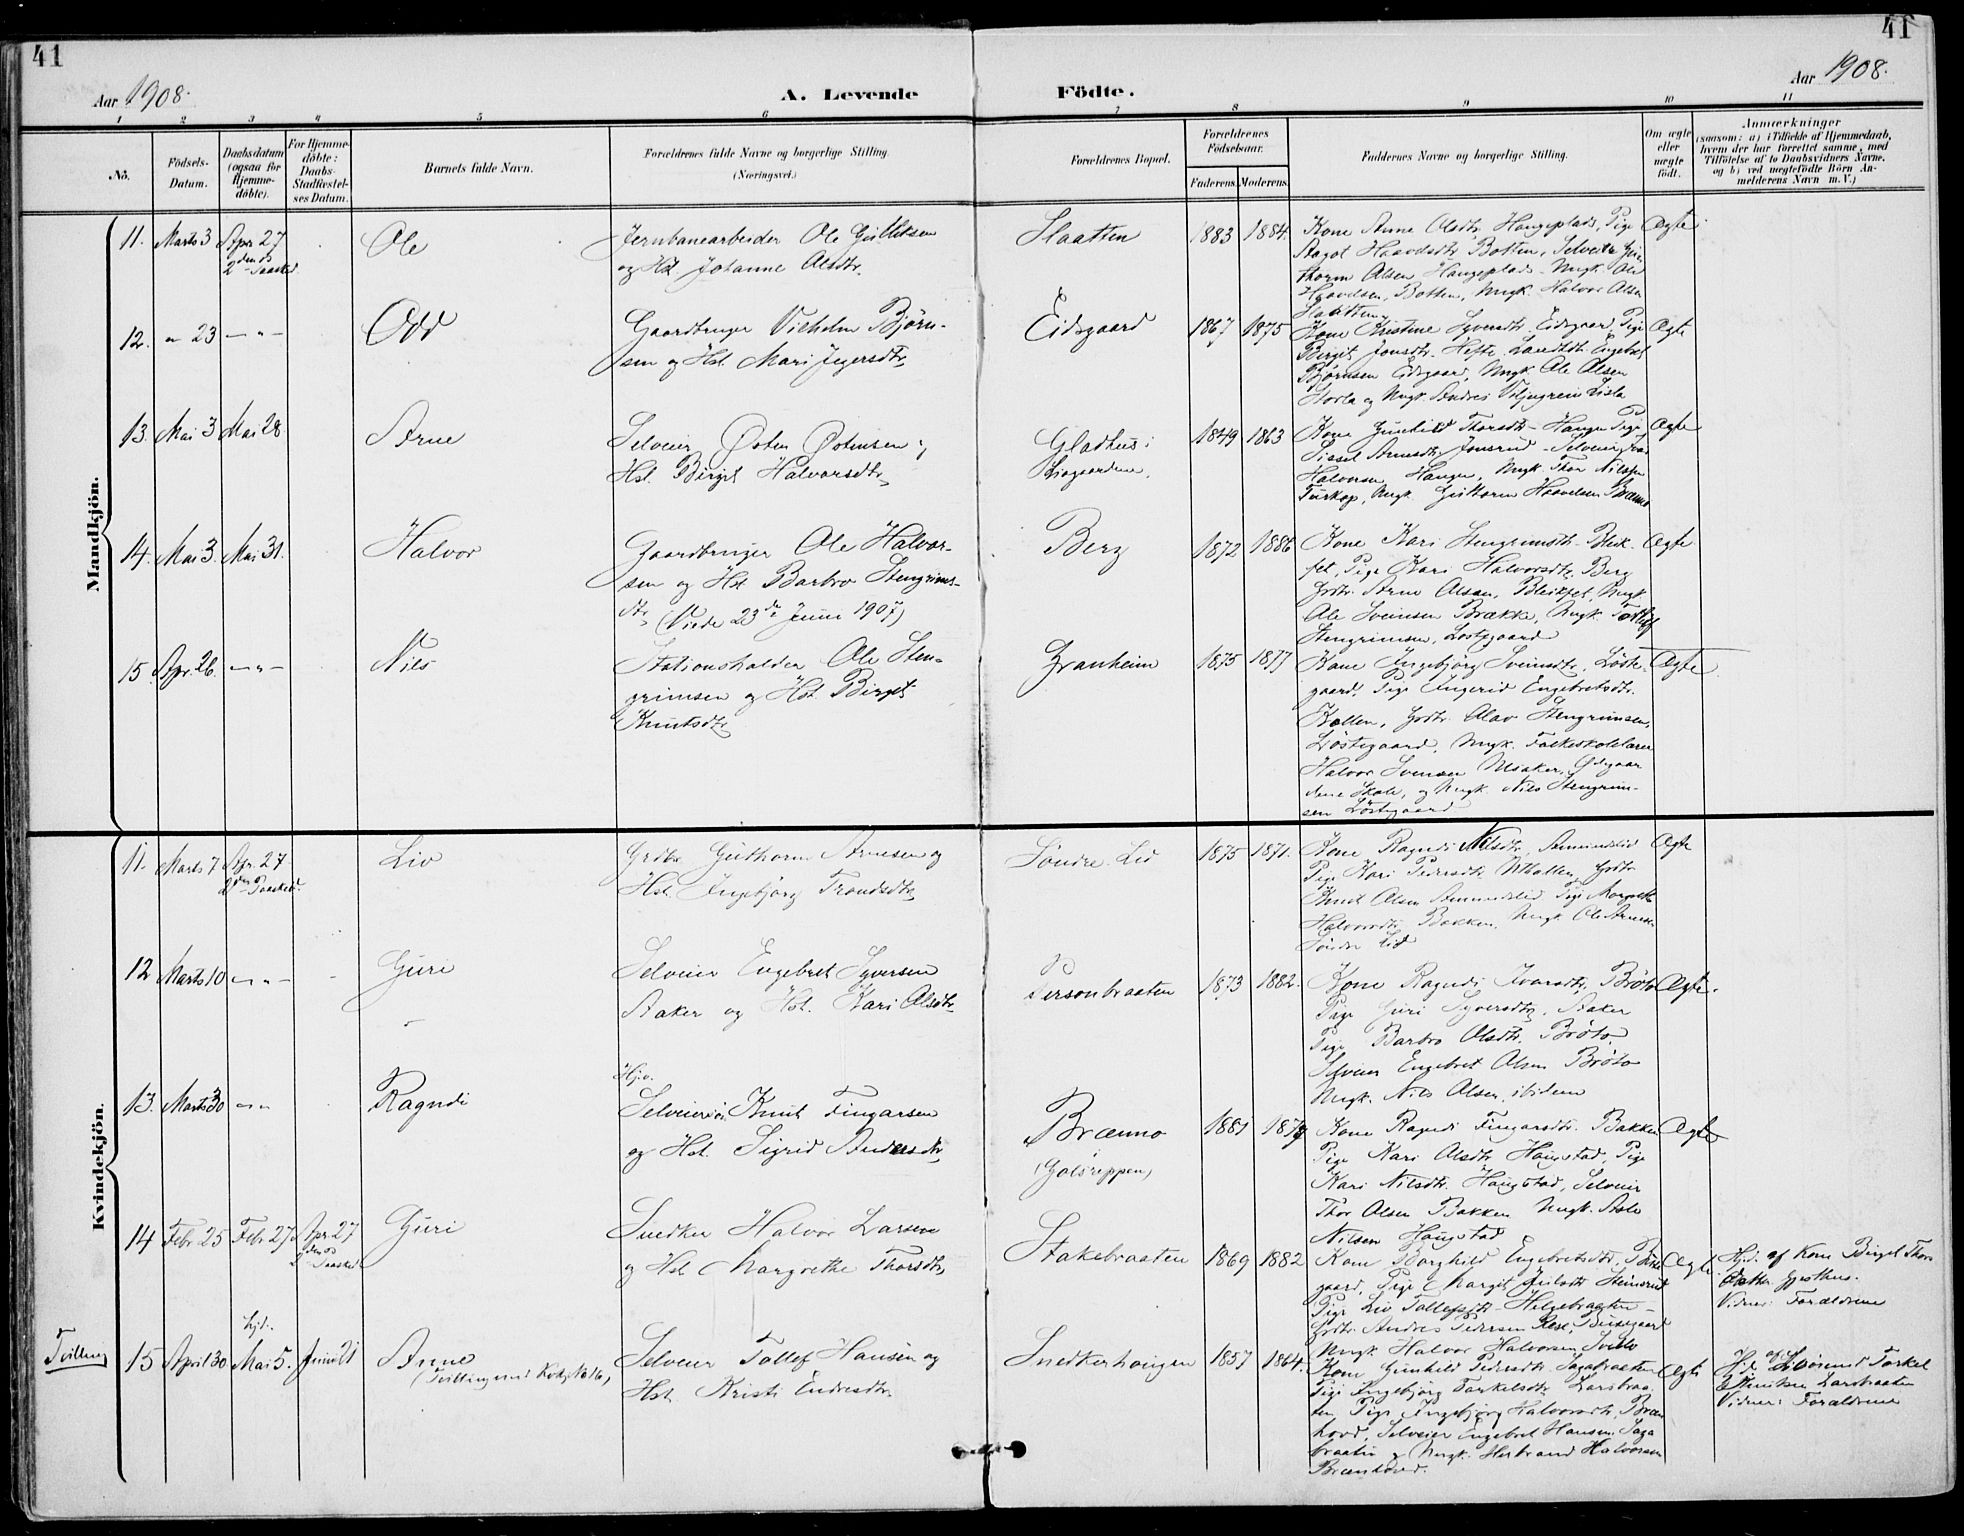 41
41
Aar 1908.
A. Levende
Födte.
Aar 1908.
1 2 3 4 5 6 7 8 9 10 11
No.
Födsels-Datum.
Daabsdatum (ogsaa for Hjemmedöbte).
For Hjemmedöbte: Daabs-Stadfæstelses Datum.
Barnets fulde Navn.
Forældrenes fulde Navne og borgerlige Stilling.
(Næringsvei.)
Forældrenes Bopæl.
Forældrenes Födselsaar.
Faderens. Moderens.
Faddernes Navne og borgerlige Stilling.
Om ægte eller uægte födt.
Anmærkninger
(saasom: a) i Tilfælde af Hjemmedaab,
hvem der har forrettet samme, med
Tilföielse af to Daabsvidners Navne,
og b) ved uægtefödte Börn Anmelderens Navn m. V.)
Mandkjön.
11. Marts 3 Apr. 27 Ole
2den Paasked.
Jernbanearbeider Ole Guttormsen
og Hst. Johanne Olsdtr.
Slaatten 1883 1884.
Kone Anne Olsdtr. Haugeplads, Pige
Aagot Haavelsdtr. Botten, Selveier
Olsen Haugeplads - Ungk. Ole
Haavelsen, Botten, Ungk. Halvor Olsen
Slaatten
Ægte
12. " 23 - " - Odd
Gaardbruger Vilhelm Bjørn-
sen og Hst. Mari
Eidsgaard 1867 1875
Kone Kristine Syversdtr. Eidsgaard, Pige
Birgit Jonsdtr. Hefte, Engebret
Bjørnsen Eidsgaard, Ungk. Ole Olsen
og Ungk. Andres
Ægte
13. Mai 3 Mai 28 Arne
Selveier Østen Østensen og
Hst. Birgit Halvorsdtr.
Gladhus i
1849 1863
Kone Gunhild Thorsdtr. Haugen Pige
Sissel Arnesdtr. - Selveier
Halvorsen Haugen, Ungk. Thor Nilsen
Ungk. Guttorm Haavelsen Brænno
Ægte
14. Mai 3. Mai 31. Halvor
Gaardbruger Ole Halvor-
sen og Hst. Barbro Stengrims-
dtr. (Viede 23de Juni 1907)
Berg 1872 1886
Kone Kari Stengrimsdtr. Bleik-
fet, Pige Kari Halvorsdtr. Berg
Grdbr. Arne Olsen, Bleikfet, Ungk.
Ole Svensen Brække, Ungk. Tollef
Stengrimsen, Løstegaard
Ægte
15. Apr. 26. - " - Nils
Stationsholder Ole Sten-
grimsen og Hst. Birgit
Knutsdtr.
Granheim 1875 1877
Kone Ingebjørg Svensdtr. Løste-
gaard, Pige Ingerid Engebretsdtr.
Kollen, Grdbr. Olav Stengrimsen,
Løstegaard, Ungk. Folkeskolelærer
Halvor Svensen Ulsaker,
Skole, og Ungk. Nils Stengrim-
sen Løstegaard
Ægte
Kvindekjön.
11. Marts 7 Apr. 27 Liv
2den Paasked.
Grdbr. Guthorm Arnesen og
Hst. Ingebjørg Trondsdtr.
Søndre Lid 1875 1871.
Kone Ragndi Nilsdtr. Aamundslid
Pige Kari Pedersdtr. Grdbr.
Knut Olsen Aamundslid Pige Margrethe
Halvorsdtr. Bakken, Ungk. Ole Arnesen
Søndre Lid
Ægte
12 Marts 10 - " - Guri
Selveier Engebret Syversen
Aaker og Hst. Kari Olsdtr.
Personbraaten 1873 1882.
Kone Ragndi Ivarsdtr. Brøto
Pige Guri Syversdtr. Aaker
Pige Barbro Olsdtr. Brøto
Selveier Engebret Olsen Brøto
Ungk. Nils Olsen, ibidem
Ægte.
13. Marts 30 - " - Ragndi
Selveier Knut Fingarsen
og Hst. Sigrid Andersdtr.
Brænno
(Golsreppen)
1881
Kone Ragndi Fingarsdtr. Bakken
Pige Kari Olsdtr. Haugstad, Pige
Kari Nilsdtr. Haugstad, Selveier
Thor Olsen Bakken Ungk. Asle
Nilsen Haugstad
Ægte
14 Febr 25 Febr. 27 Apr. 27 Guri
2den Paasked
Snedker Halvor Larsen
og Hst Margrethe Thorsdtr.
Stakebraaten 1869 1882
Kone Borghild Engebretsdtr.
gaard, Pige Margit
Pige Liv Tollefsdtr. Helgebraaten -
Grdbr. Andres Pedersen
Ungk. Halvor Halvorsen
Ægte
Hjd. af Kone Birgit Thors
Datter Gjesthus.
Vidner: Forældrene
Tvilling 15 April 30 hjd. Mai 5. Juni 21 Anne
(Tvilling med Kvk No 16)
Selveier Tollef Hansen og
Hst. Kristi Endresdtr.
Snedkerhaugen 1857 1864.
Kone Gunhild Pedersdtr. Sagabraaten
Pige Ingebjørg Torkelsdtr. Larsbraa-
ten Pige Ingebjørg Halvorsdtr. Bræn-
hovd, Selveier Engebret Hansen Saga
braaten og Ungk. Herbrand Halvorsen
Brænhovd.
Ægte
Torkel
Larsbraaten
Vidner: Forældrene